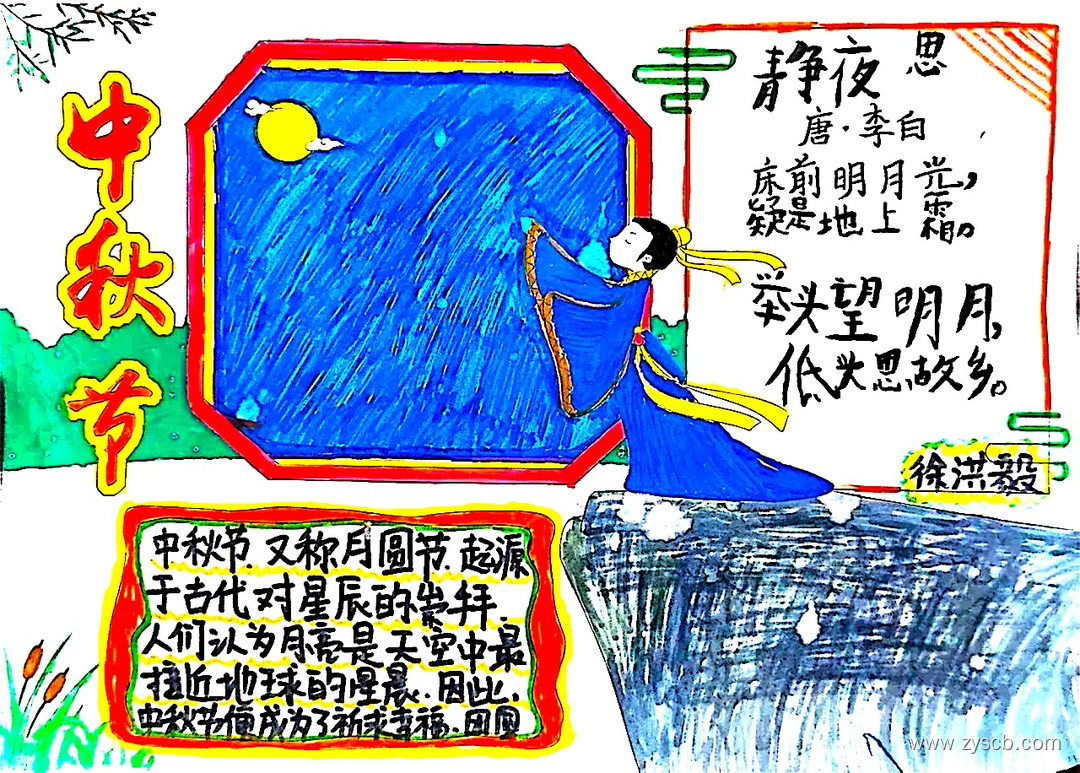 中秋节
静夜思
唐·李白
床前明月光，
疑是地上霜。
举头望明月，
低头思故乡。
徐洪毅
中秋节.又称月圆节.起源
于古代对星辰的崇拜.
人们认为月亮是天空中最
接近地球的星晨.因此.
中秋节便成为了祈求幸福.团圆
www.zyscb.com